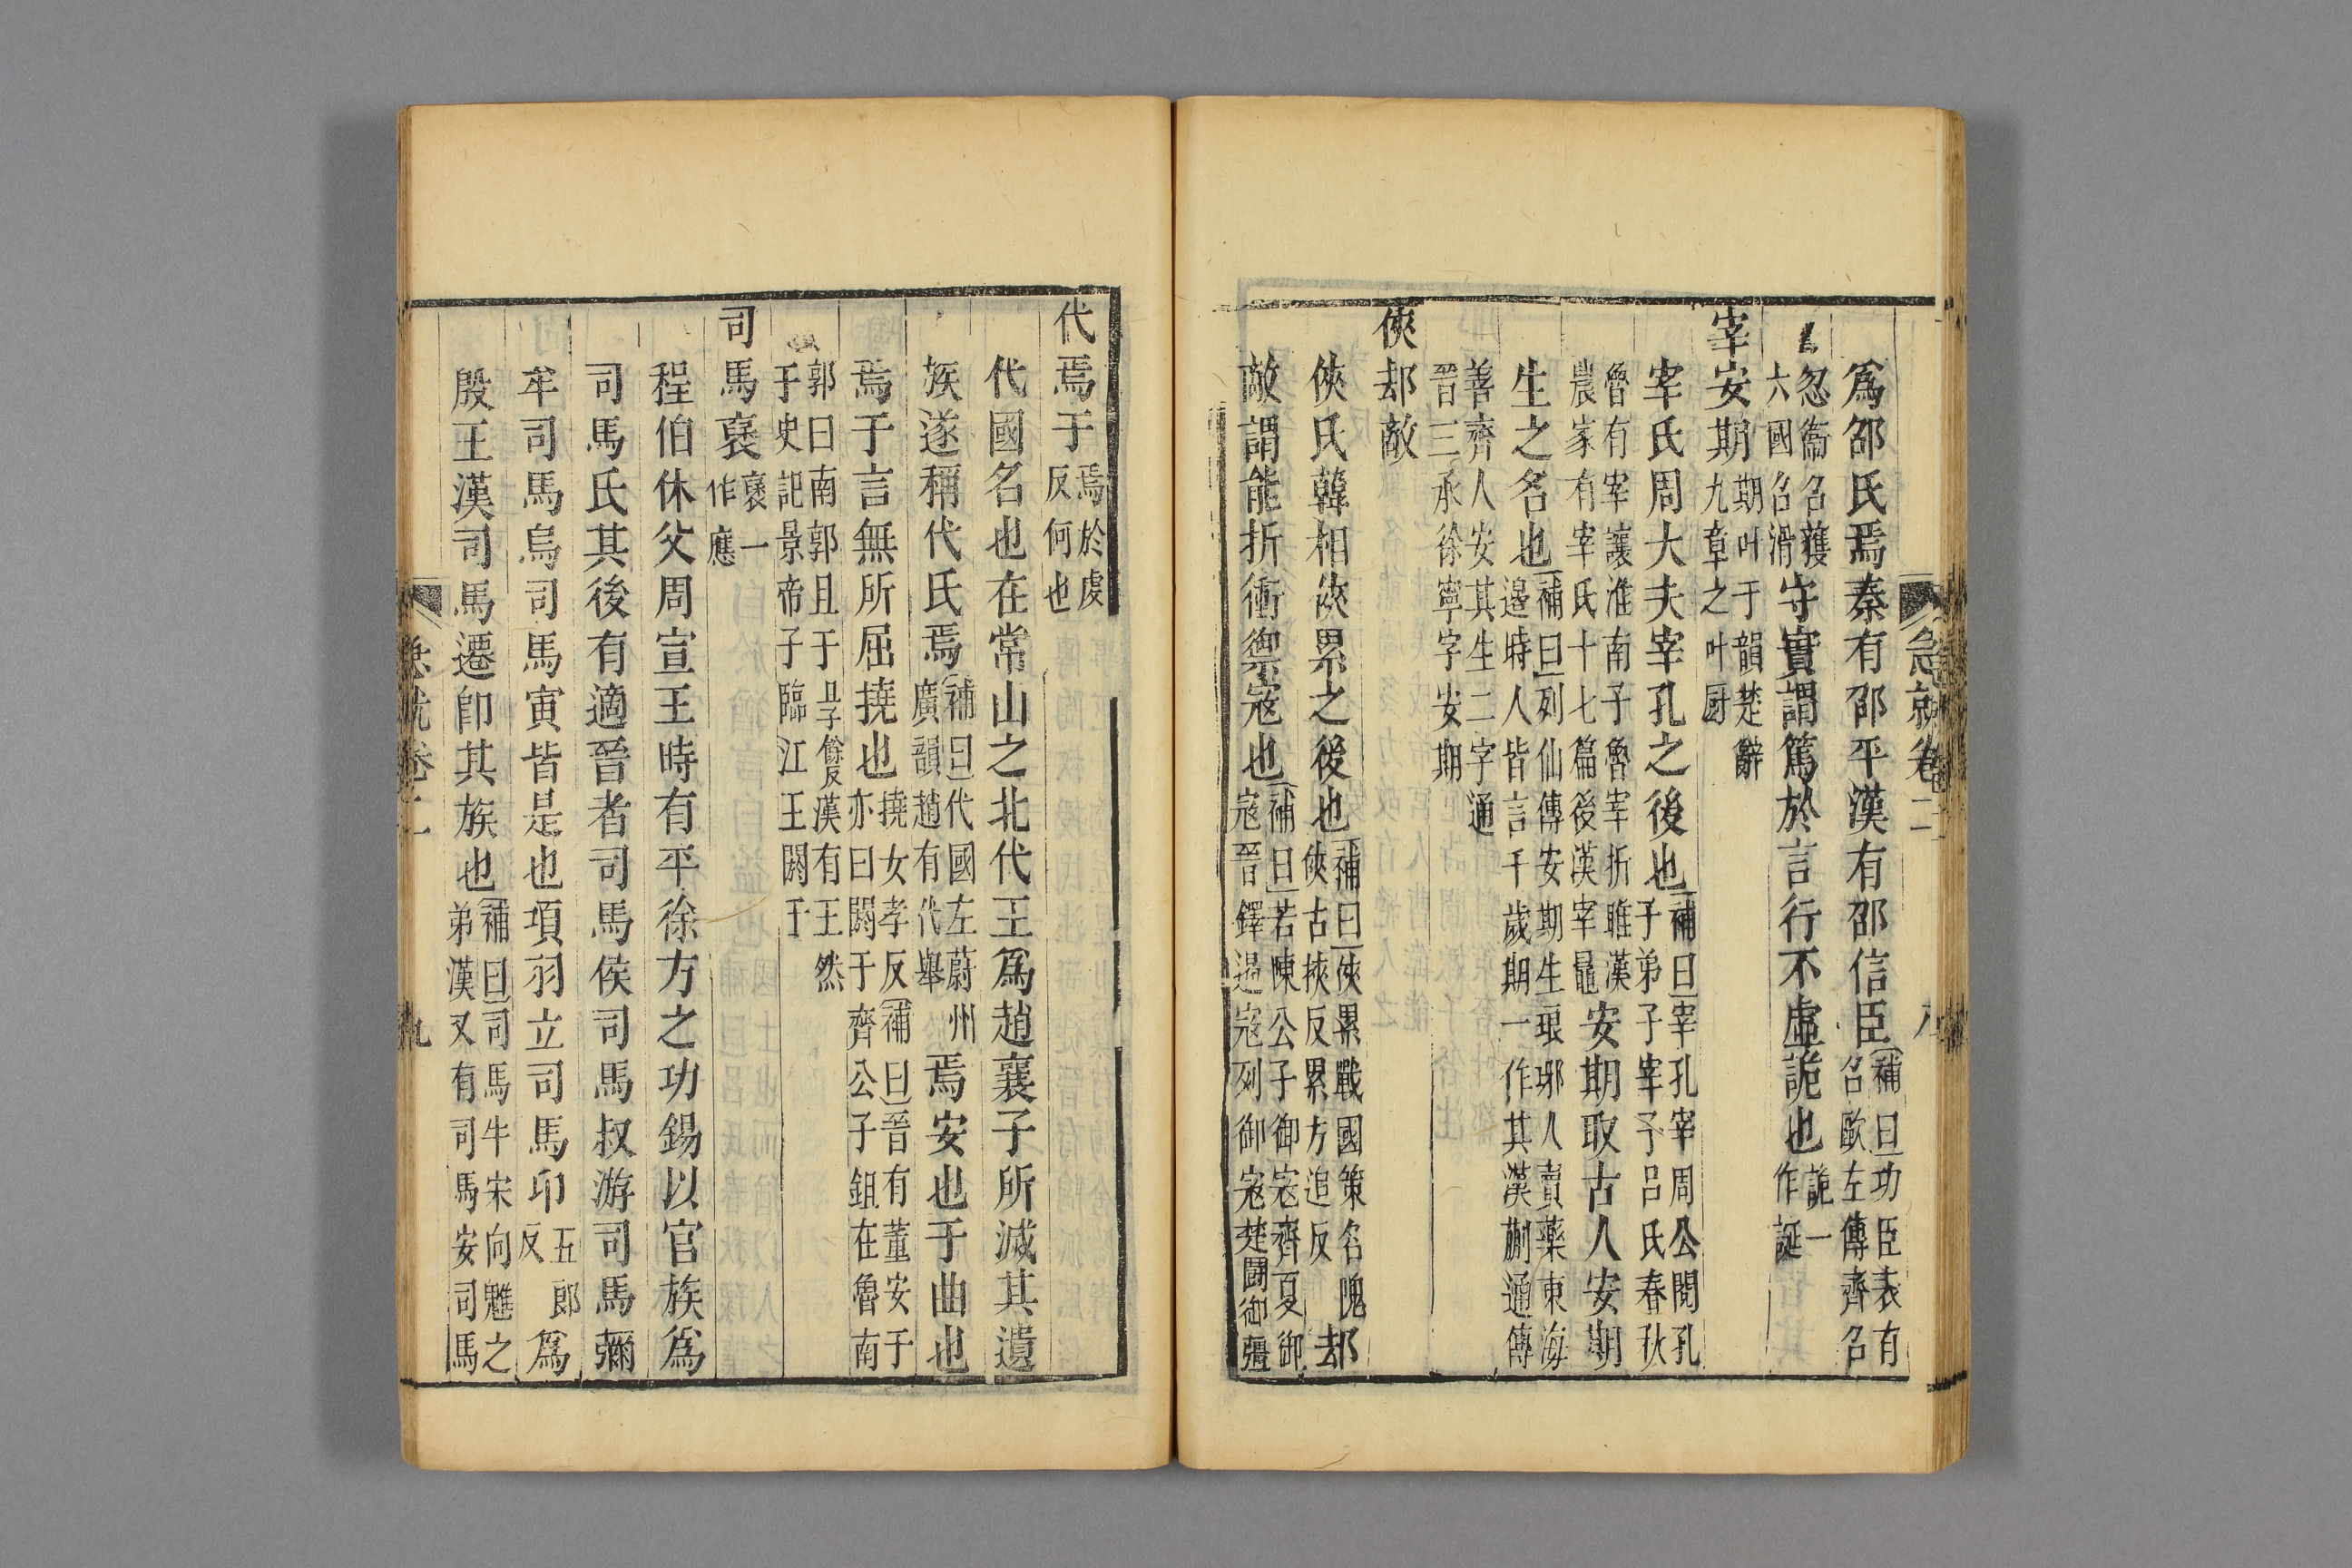 急就卷二
爲邵氏焉秦有邵平漢有邵信臣補曰功臣表有召歐左傳齊召
忽衞召獲六國召滑守實謂篤於言行不虛詭也詭一作誕
宰安期期叶于韻楚辭九章之叶厨
宰氏周大夫宰孔之後也補曰宰孔宰周公閱孔子弟子宰予呂氏春秋
魯有宰讓淮南子魯宰折睢漢農家有宰氏十七篇後漢宰鼂安期取古人安期
生之名也補曰列仙傳安期生琅邪人賣藥東海邊時人皆言千歲期一作其漢蒯通傳
善齊人安其生二字通晉三承徐寧字安期
俠却敵
俠氏韓相俠累之後也補曰俠累戰國策名傀俠古挾反累方追反却
敵謂能折衝禦寇也補曰若陳公子御寇齊夏御寇晉鐸遏寇列御寇楚鬬御彊
代焉于焉於虔反何也
代國名也在常山之北代王爲趙襄子所滅其遺
族遂稱代氏焉補曰代國左蔚州廣韻趙有代舉焉安也于曲也
焉于言無所屈撓也撓女孝反補曰晉有董安于亦曰閼于齊公子鉏在魯南
郭曰南郭且于且子餘反漢有王然于史記景帝子臨江王閼于
司馬褒褒一作應
程伯休父周宣王時有平徐方之功錫以官族爲
司馬氏其後有適晉者司馬侯司馬叔游司馬彌
牟司馬烏司馬寅皆是也項羽立司馬卬五郎反爲
殷王漢司馬遷卽其族也補曰司馬牛宋向魋之弟漢又有司馬安司馬
急就卷二
九